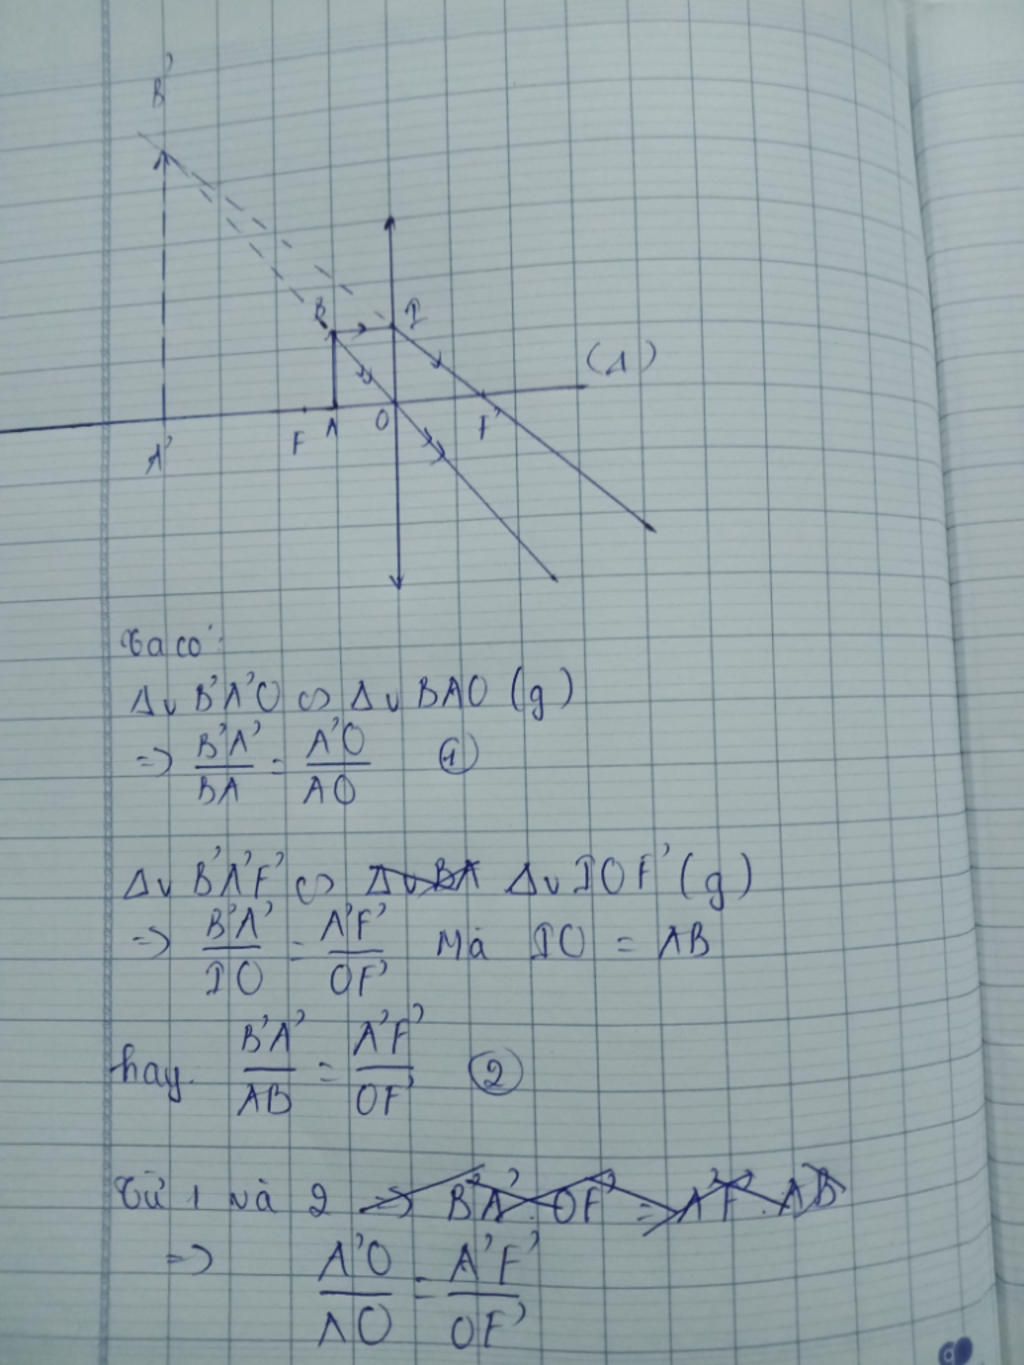 B'
B I
(Δ)
A' F A O F'
Ta có:
Δv B'A'O ∽ Δv BAO (g)
=> B'A'/BA = A'O/AO (1)
Δv B'A'F' ∽ Δv BA Δv IOF' (g)
=> B'A'/IO = A'F'/OF' Mà IO = AB
hay B'A'/AB = A'F'/OF' (2)
Từ 1 và 2 => B'A'.OF' = A'F'.AB
=> A'O/AO = A'F'/OF'